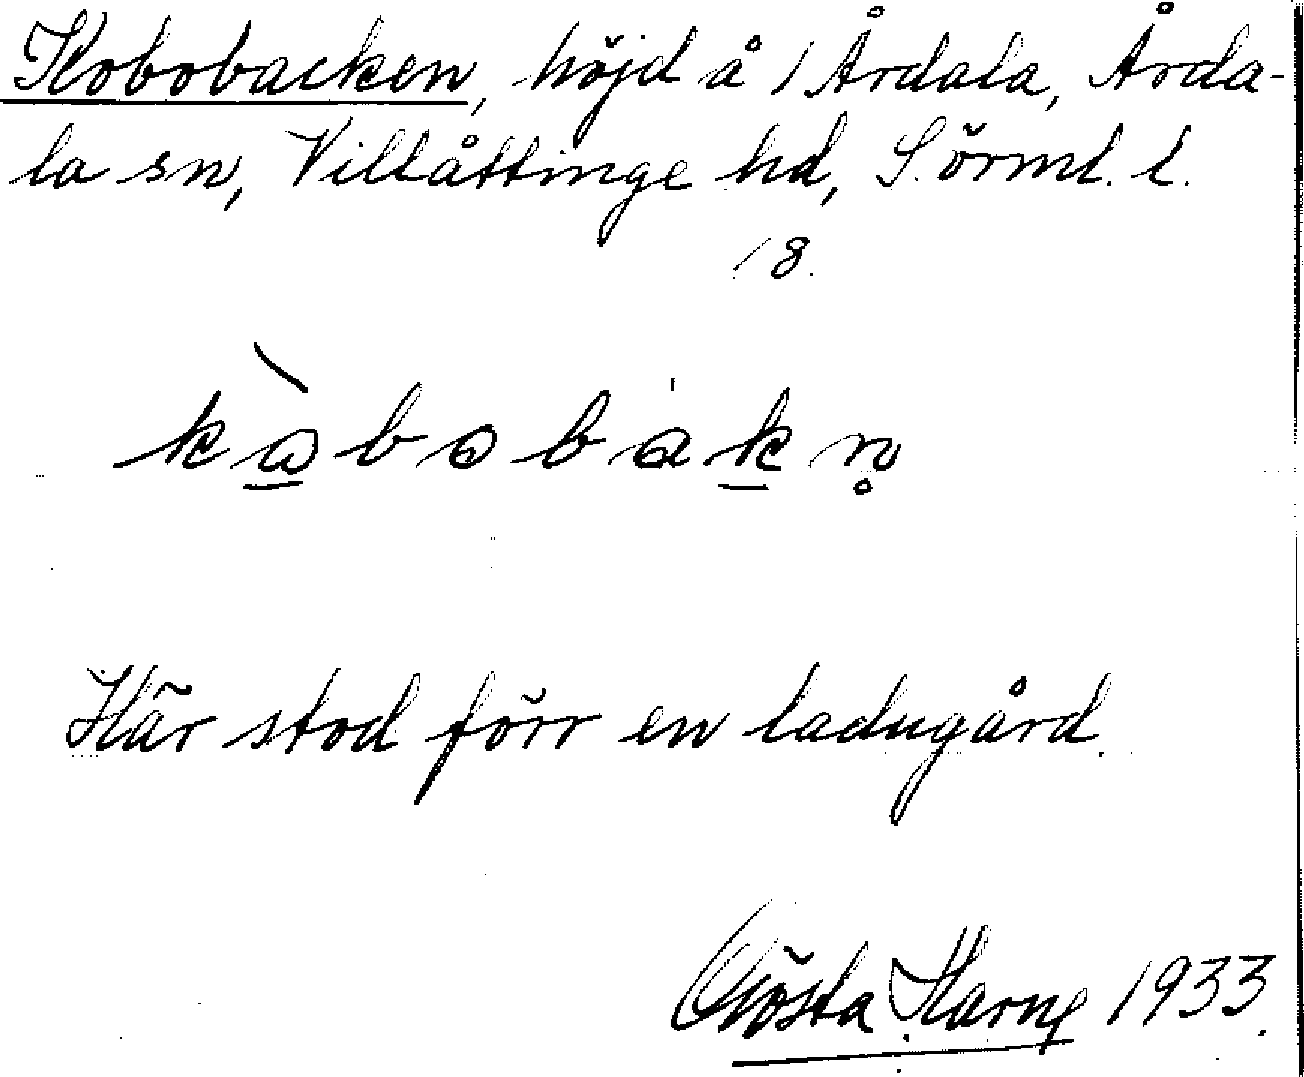 Kobobacken, höjd å 1 Årdala, Årda-
la sn, Villåttinge hd, Sörml. l.
18.
kòbobakn̥
Här stod förr en ladugård.
Gösta Harne 1933.